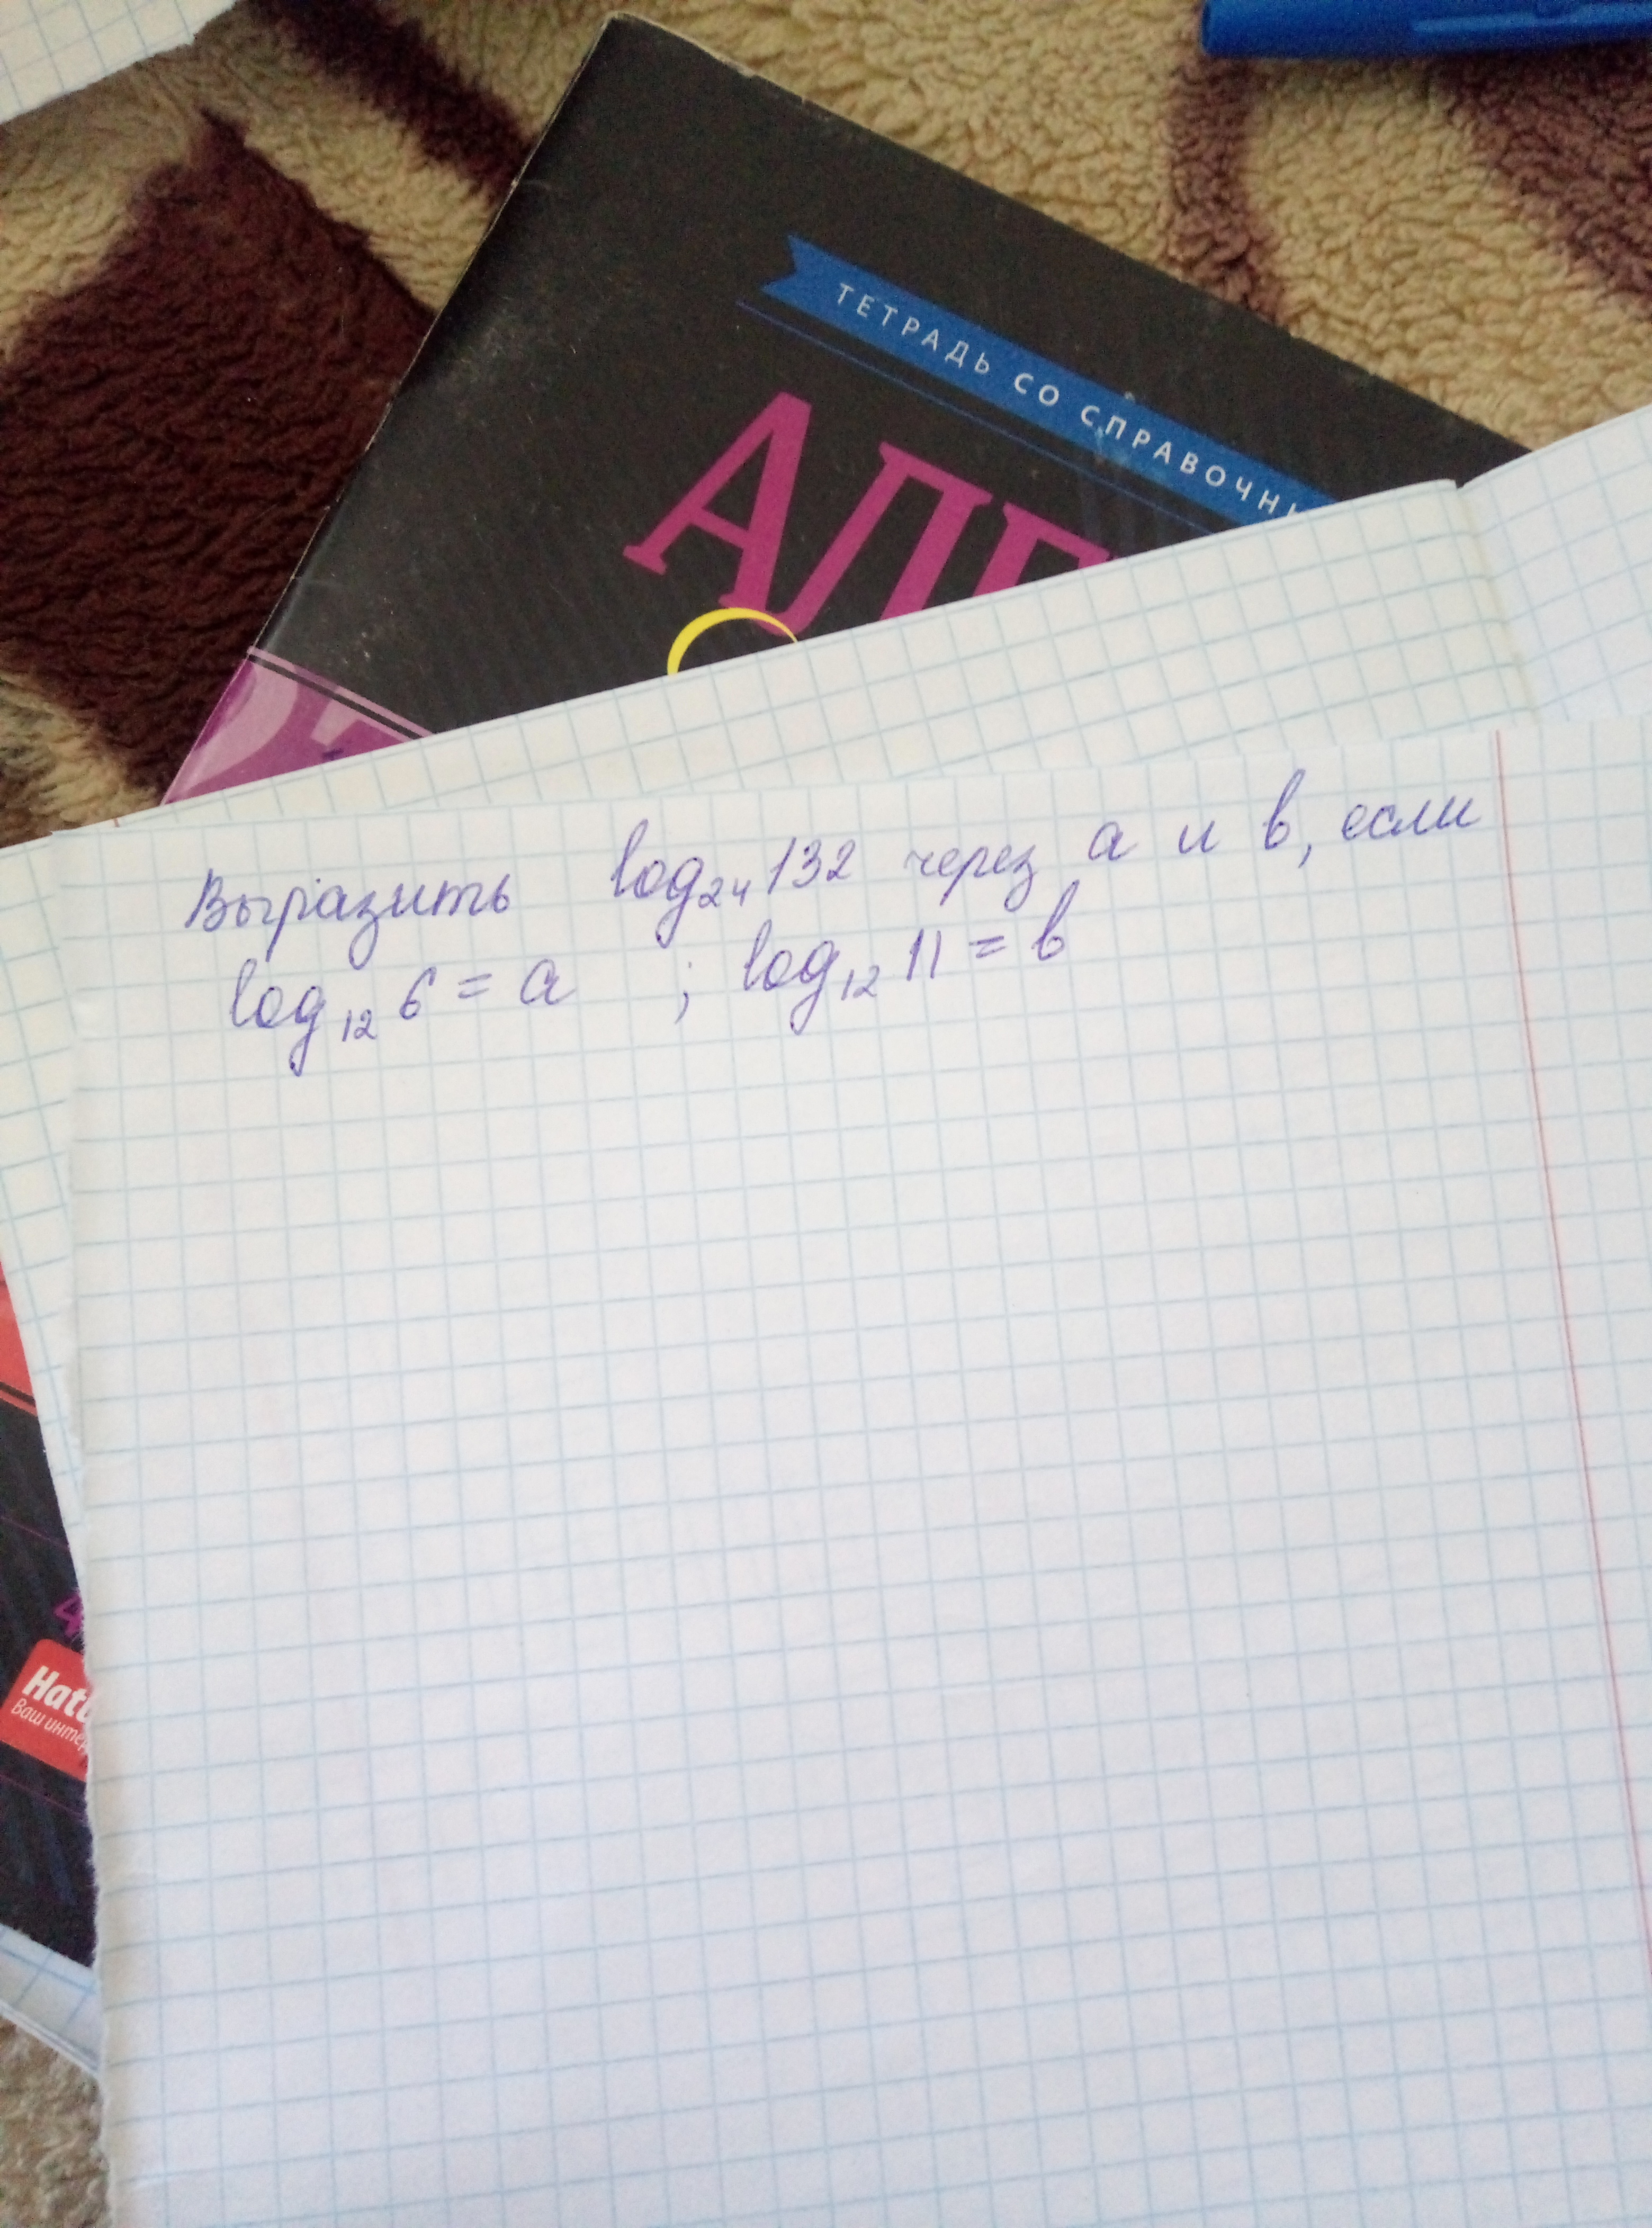 ТЕТРАДЬ СО СПРАВОЧН
АЛГ
Выразить log₂₄132 через a и b, если
log₁₂ 6 = a ; log₁₂ 11 = b
4
Hat
Ваш интер